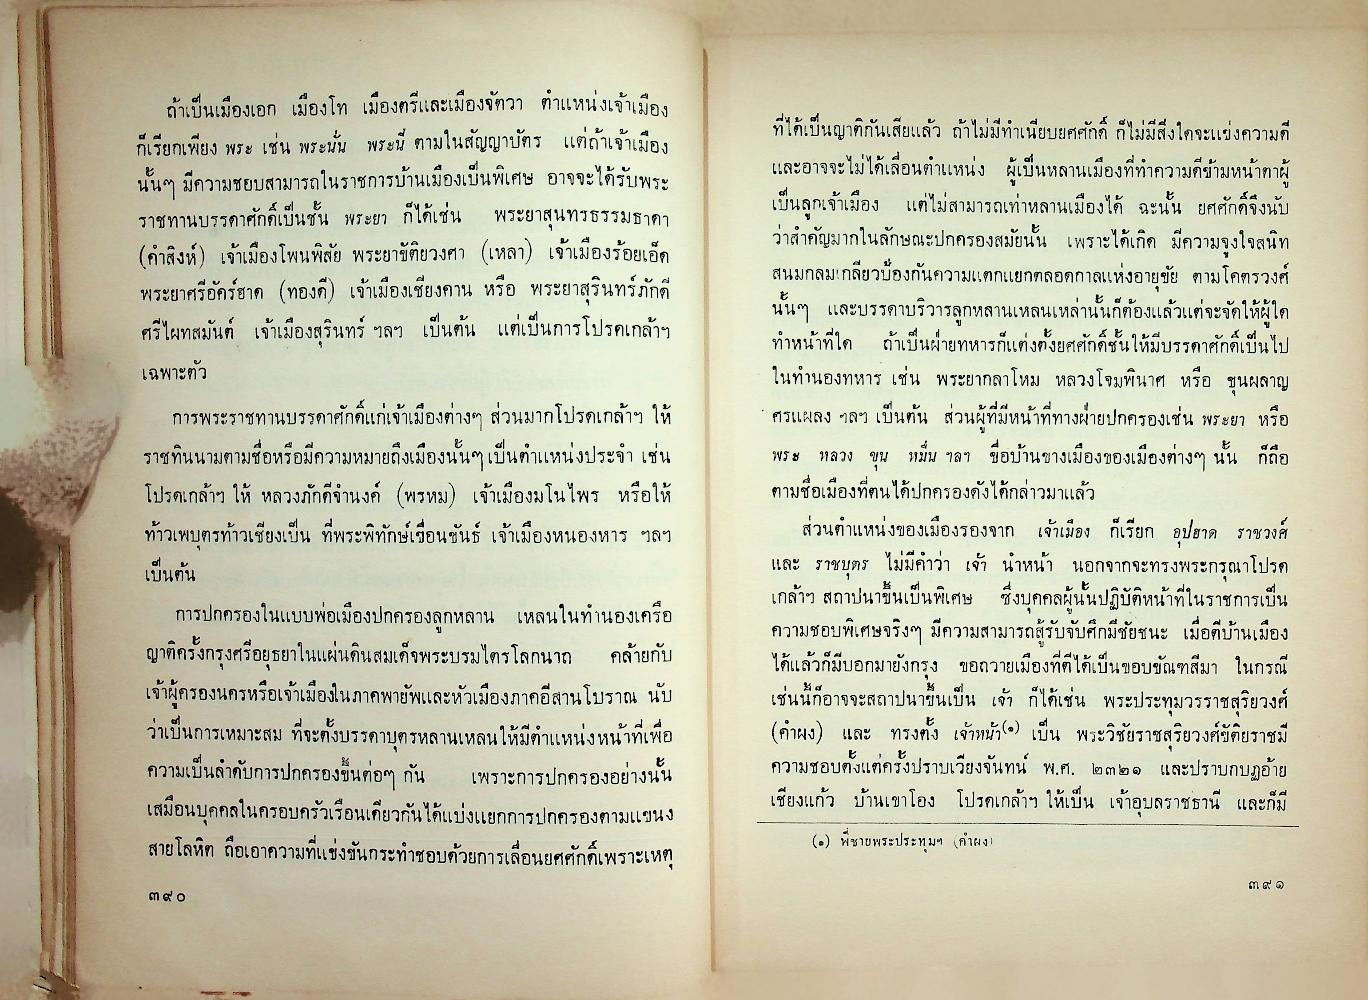 ถ้าเป็นเมืองเอก เมืองโท เมืองตรีและเมืองจัตวา ตำแหน่งเจ้าเมือง
ก็เรียกเพียง พระ เช่น พระนั่น พระนี่ ตามในสัญญาบัตร แต่ถ้าเจ้าเมือง
นั้นๆ มีความชอบสามารถในราชการบ้านเมืองเป็นพิเศษ อาจจะได้รับพระ
ราชทานบรรดาศักดิ์เป็นชั้น พระยา ก็ได้เช่น พระยาสุนทรธรรมธาดา
(คำสิงห์) เจ้าเมืองโพนพิสัย พระยาขัติยวงศา (เหลา) เจ้าเมืองร้อยเอ็ด
พระยาศรีอัคร์ฮาด (ทองดี) เจ้าเมืองเชียงคาน หรือ พระยาสุรินทร์ภักดี
ศรีไผทสมันต์ เจ้าเมืองสุรินทร์ ฯลฯ เป็นต้น แต่เป็นการโปรดเกล้าฯ
เฉพาะตัว
การพระราชทานบรรดาศักดิ์แก่เจ้าเมืองต่างๆ ส่วนมากโปรดเกล้าฯ ให้
ราชทินนามตามชื่อหรือมีความหมายถึงเมืองนั้นๆ เป็นตำแหน่งประจำ เช่น
โปรดเกล้าฯ ให้ หลวงภักดีจำนงค์ (พรหม) เจ้าเมืองมโนไพร หรือให้
ท้าวเพบุตรท้าวเชียงเป็น ที่พระพิทักษ์เขื่อนขันธ์ เจ้าเมืองหนองหาร ฯลฯ
เป็นต้น
การปกครองในแบบพ่อเมืองปกครองลูกหลาน เหลนในทำนองเครือ
ญาติครั้งกรุงศรีอยุธยาในแผ่นดินสมเด็จพระบรมไตรโลกนาถ คล้ายกับ
เจ้าผู้ครองนครหรือเจ้าเมืองในภาคพายัพและหัวเมืองภาคอีสานโบราณ นับ
ว่าเป็นการเหมาะสม ที่จะตั้งบรรดาบุตรหลานเหลนให้มีตำแหน่งหน้าที่เพื่อ
ความเป็นลำดับการปกครองขึ้นต่อๆ กัน เพราะการปกครองอย่างนั้น
เสมือนบุคคลในครอบครัวเรือนเดียวกันได้แบ่งแยกการปกครองตามแขนง
สายโลหิต ถือเอาความที่แข่งขันกระทำชอบด้วยการเลื่อนยศศักดิ์เพราะเหตุ
๓๙๐
ที่ได้เป็นญาติกันเสียแล้ว ถ้าไม่มีทำเนียบยศศักดิ์ ก็ไม่มีสิ่งใดจะแข่งความดี
และอาจจะไม่ได้เลื่อนตำแหน่ง ผู้เป็นหลานเมืองที่ทำความดีข้ามหน้าตาผู้
เป็นลูกเจ้าเมือง แต่ไม่สามารถเท่าหลานเมืองได้ ฉะนั้น ยศศักดิ์จึงนับ
ว่าสำคัญมากในลักษณะปกครองสมัยนั้น เพราะได้เกิด มีความจูงใจสนิท
สนมกลมเกลียวป้องกันความแตกแยกตลอดกาลแห่งอายุขัย ตามโคตรวงศ์
นั้นๆ และบรรดาบริวารลูกหลานเหลนเหล่านั้นก็ต้องแล้วแต่จะจัดให้ผู้ใด
ทำหน้าที่ใด ถ้าเป็นฝ่ายทหารก็แต่งตั้งยศศักดิ์ชั้นให้มีบรรดาศักดิ์เป็นไป
ในทำนองทหาร เช่น พระยากลาโหม หลวงโจมพินาศ หรือ ขุนผลาญ
ศรแผลง ฯลฯ เป็นต้น ส่วนผู้ที่มีหน้าที่ทางฝ่ายปกครองเช่น พระยา หรือ
พระ หลวง ขุน หมื่น ฯลฯ ชื่อบ้านขางเมืองของเมืองต่างๆ นั้น ก็ถือ
ตามชื่อเมืองที่ตนได้ปกครองดังได้กล่าวมาแล้ว
ส่วนตำแหน่งของเมืองรองจาก เจ้าเมือง ก็เรียก อุปฮาด ราชวงศ์
และ ราชบุตร ไม่มีคำว่า เจ้า นำหน้า นอกจากจะทรงพระกรุณาโปรด
เกล้าฯ สถาปนาขึ้นเป็นพิเศษ ซึ่งบุคคลผู้นั้นปฏิบัติหน้าที่ในราชการเป็น
ความชอบพิเศษจริงๆ มีความสามารถสู้รับจับศึกมีชัยชนะ เมื่อตีบ้านเมือง
ได้แล้วก็มีบอกมายังกรุง ขอถวายเมืองที่ตีได้เป็นขอบขัณฑสีมา ในกรณี
เช่นนี้ก็อาจจะสถาปนาขึ้นเป็น เจ้า ก็ได้เช่น พระประทุมวรราชสุริยวงศ์
(คำผง) และ ทรงตั้ง เจ้าหน้า(๑) เป็น พระวิชัยราชสุริยวงศ์ขัติยราชมี
ความชอบตั้งแต่ครั้งปราบเวียงจันทน์ พ.ศ. ๒๓๒๑ และปราบกบฏอ้าย
เชียงแก้ว บ้านเขาโอง โปรดเกล้าฯ ให้เป็น เจ้าอุบลราชธานี และก็มี
(๑) พี่ชายพระประทุมฯ (คำผง)
๓๙๑